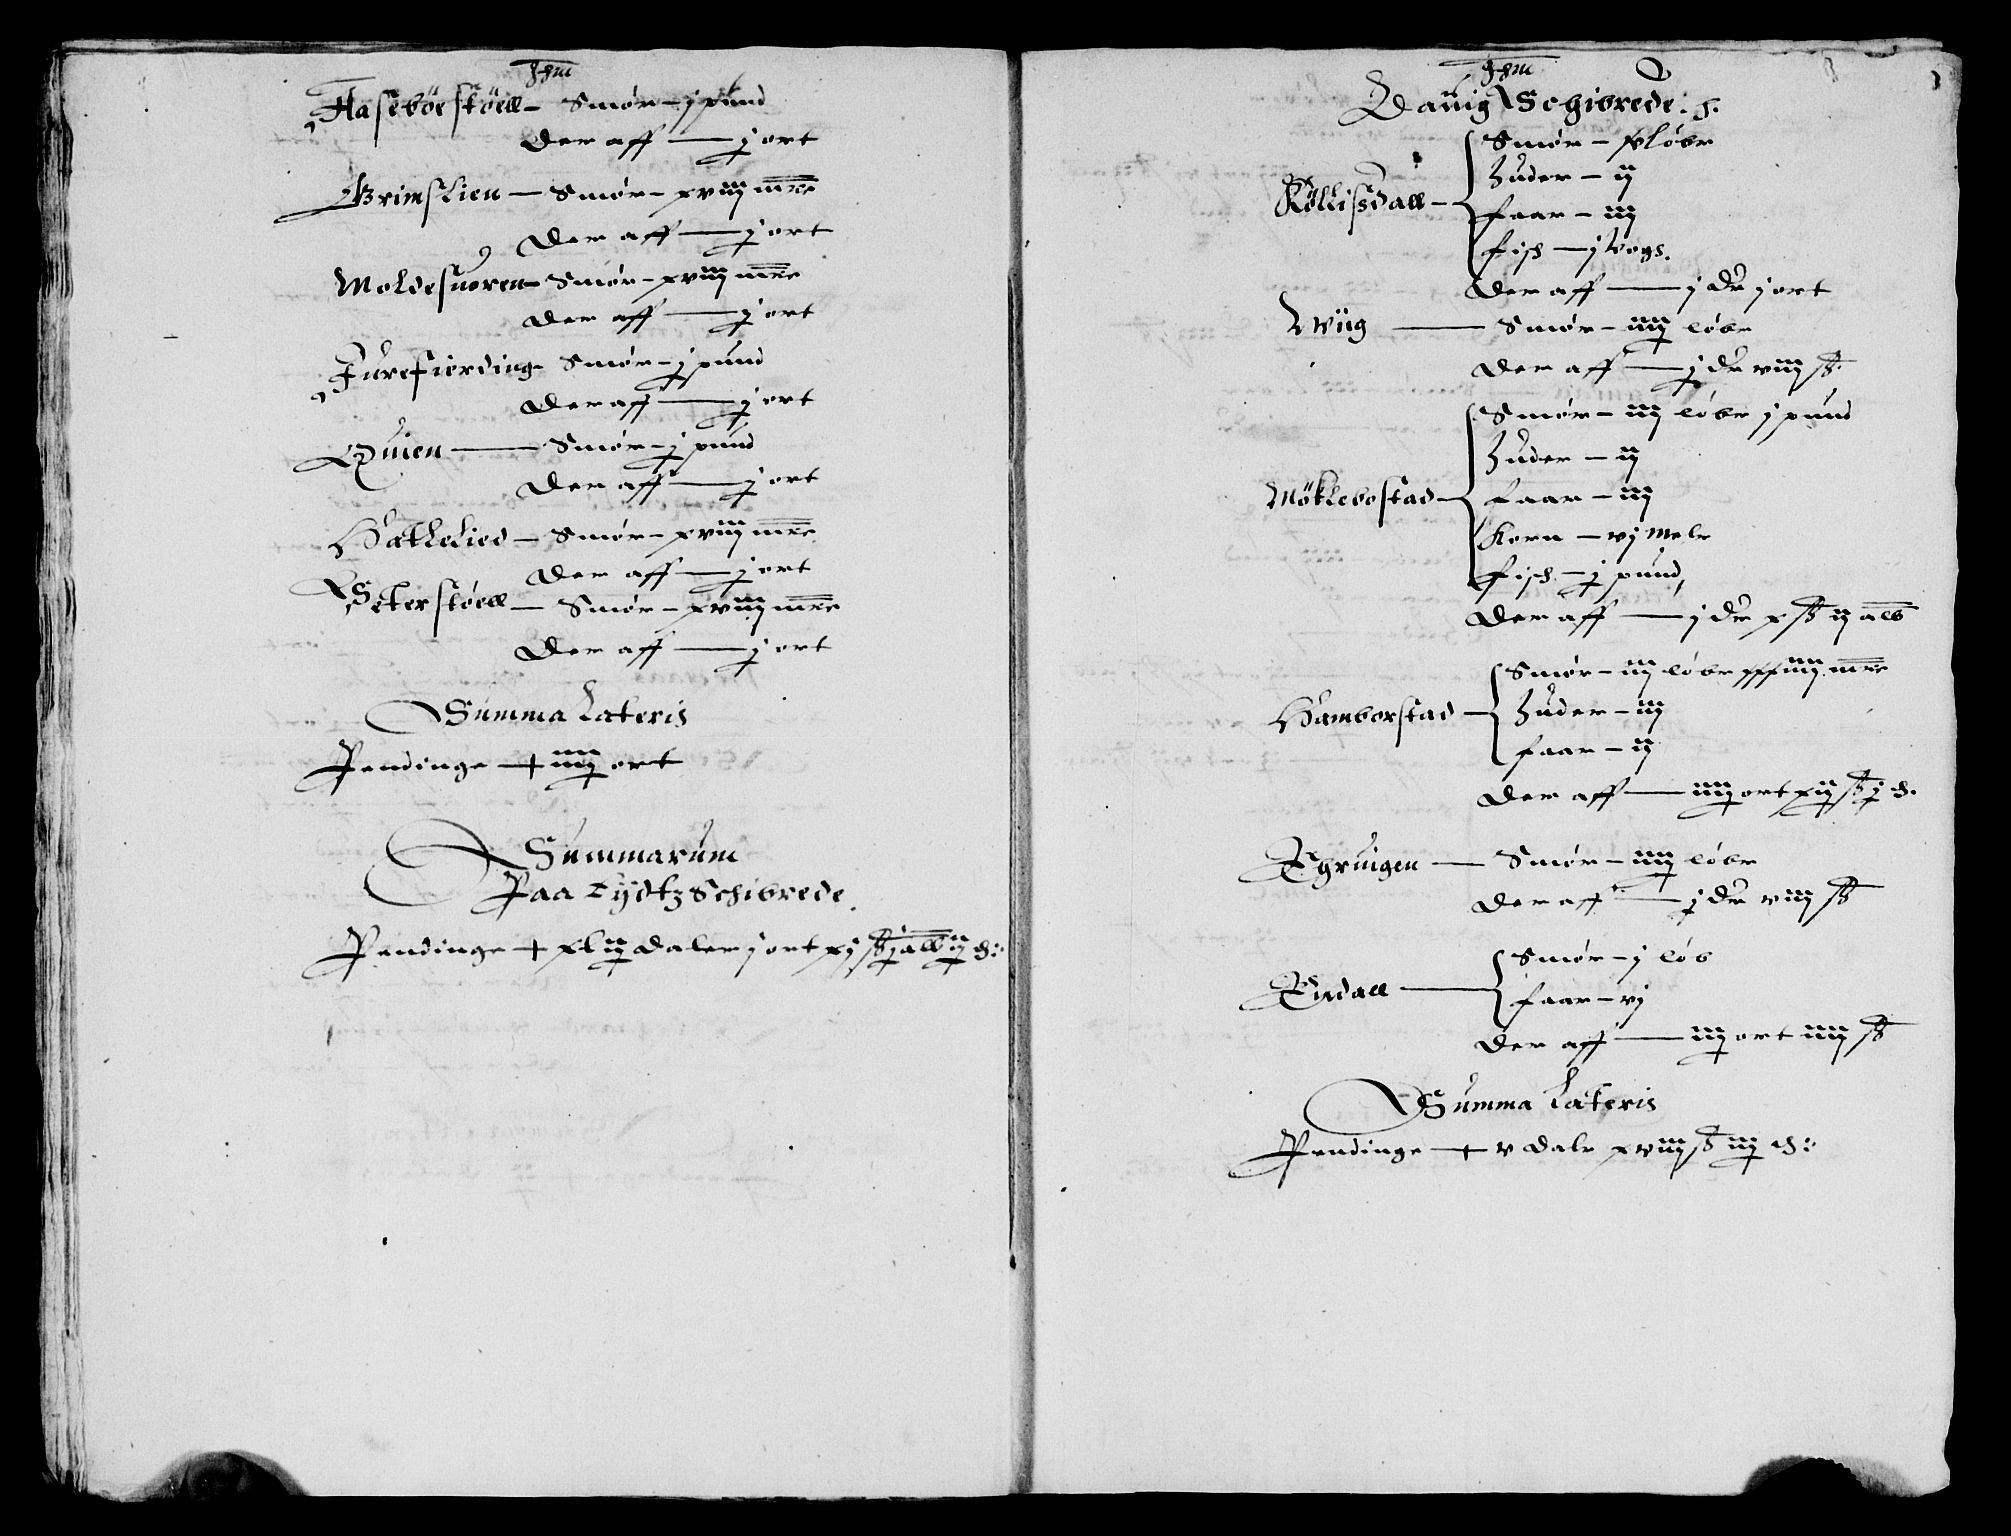 Jhm
Hasebøestøell – Smør – j pund
Der aff — j ort
Grimslien — Smør – xviij mrr
Der aff — j ort
Moldesuoren – Smør – xviij mrr
Der aff — j ort
Furefiording – Smør – j pund
Der aff — j ort
Quien — Smør – j pund
Der aff — j ort
Hattlelied – Smør – xviij mrr
Der aff — j ort
Seterstøell – Smør – xviij mrr
Der aff — j ort
Summa Lateris
Pendinge + iiij ort
Summarum
Paa Eydtz Schibrede.
Pendinge + xlij daler j ort xj ß j alb ij d:
Jhm
Dauig Schibrede: s.
Køllissdall –
Smør – x løbr
Huder – ij
Faar – iij
Fisch — j Vogs.
Der aff — j dr j ort
Wiig — Smør – iiij løbr
Der aff — j dr viij ß.
Møklebostad –
Smør – iij løbr j pund
Huder – ij
Faar – iij
Korn – vj melr
Fisch – j pund,
Der aff — j dr x ß ij alb
Hamborstad –
Smør – iij løbr xxxiiij mrr
Huder – iij
Faar – ij
Der aff — iiij ort xij ß j d.
Ehruigen — Smør – iiij løbr
Der aff — j dr viij ß
Eirdall —
Smør – j løb
Faar – vj
Der aff — iij ort iiij ß
Summa Lateris
Pendinge + v dalr xviij ß iij d: